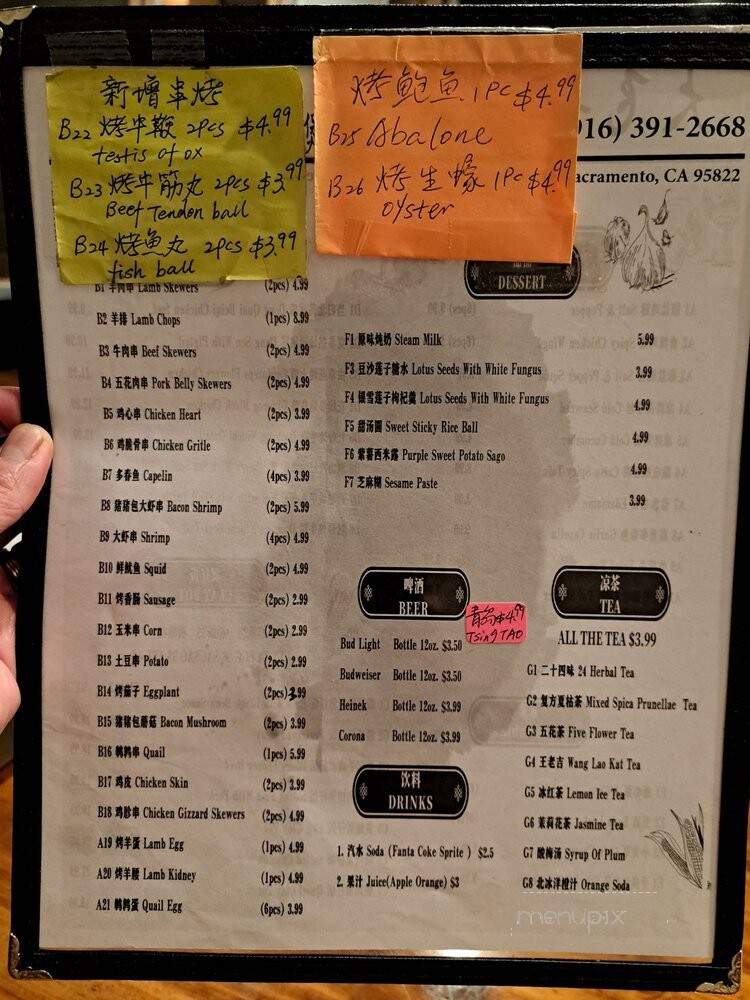 新增串烤
B22 烤牛鞭 2pcs $4.99
testis of ox
B23 烤牛筋丸 2pcs $3.99
Beef Tendon ball
B24 烤鱼丸 2pcs $3.99
fish ball
烤鲍鱼 1pc $4.99
B25 Abalone
B26 烤生蠔 1pc $4.99
oyster
916) 391-2668
acramento, CA 95822
B1 羊肉串 Lamb Skewers (2pcs) 4.99
B2 羊排 Lamb Chops (1pc) 8.99
B3 牛肉串 Beef Skewers (2pcs) 4.99
B4 五花肉串 Pork Belly Skewers (2pcs) 4.99
B5 鸡心串 Chicken Heart (2pcs) 3.99
B6 鸡脆骨串 Chicken Gritle (2pcs) 4.99
B7 多春鱼 Capelin (4pcs) 3.99
B8 猪猪包大虾串 Bacon Shrimp (2pcs) 5.99
B9 大虾串 Shrimp (4pcs) 4.99
B10 鲜鱿鱼 Squid (2pcs) 4.99
B11 烤香肠 Sausage (2pcs) 2.99
B12 玉米串 Corn (2pcs) 2.99
B13 土豆串 Potato (2pcs) 2.99
B14 烤茄子 Eggplant (2pcs) 3.99
B15 猪猪包蘑菇 Bacon Mushroom (2pcs) 3.99
B16 鹌鹑串 Quail (1pc) 5.99
B17 鸡皮 Chicken Skin (2pcs) 3.99
B18 鸡胗串 Chicken Gizzard Skewers (2pcs) 4.99
A19 烤羊蛋 Lamb Egg (1pc) 4.99
A20 烤羊腰 Lamb Kidney (1pc) 4.99
A21 鹌鹑蛋 Quail Egg (6pcs) 3.99
DESSERT
F1 原味炖奶 Steam Milk 5.99
F3 豆沙莲子糖水 Lotus Seeds With White Fungus 3.99
F4 银雪莲子枸杞羹 Lotus Seeds With White Fungus 4.99
F5 甜汤圆 Sweet Sticky Rice Ball 4.99
F6 紫薯西米露 Purple Sweet Potato Sago 4.99
F7 芝麻糊 Sesame Paste 3.99
啤酒
BEER
青岛 $4.99
TsingTAO
Bud Light Bottle 12oz. $3.50
Budweiser Bottle 12oz. $3.50
Heinek Bottle 12oz. $3.99
Corona Bottle 12oz. $3.99
饮料
DRINKS
1. 汽水 Soda (Fanta Coke Sprite ) $2.5
2. 果汁 Juice(Apple Orange) $3
凉茶
TEA
ALL THE TEA $3.99
G1 二十四味 24 Herbal Tea
G2 复方夏枯茶 Mixed Spica Prunellae Tea
G3 五花茶 Five Flower Tea
G4 王老吉 Wang Lao Kat Tea
G5 冰红茶 Lemon Ice Tea
G6 茉莉花茶 Jasmine Tea
G7 酸梅汤 Syrup Of Plum
G8 北冰洋橙汁 Orange Soda
menupix